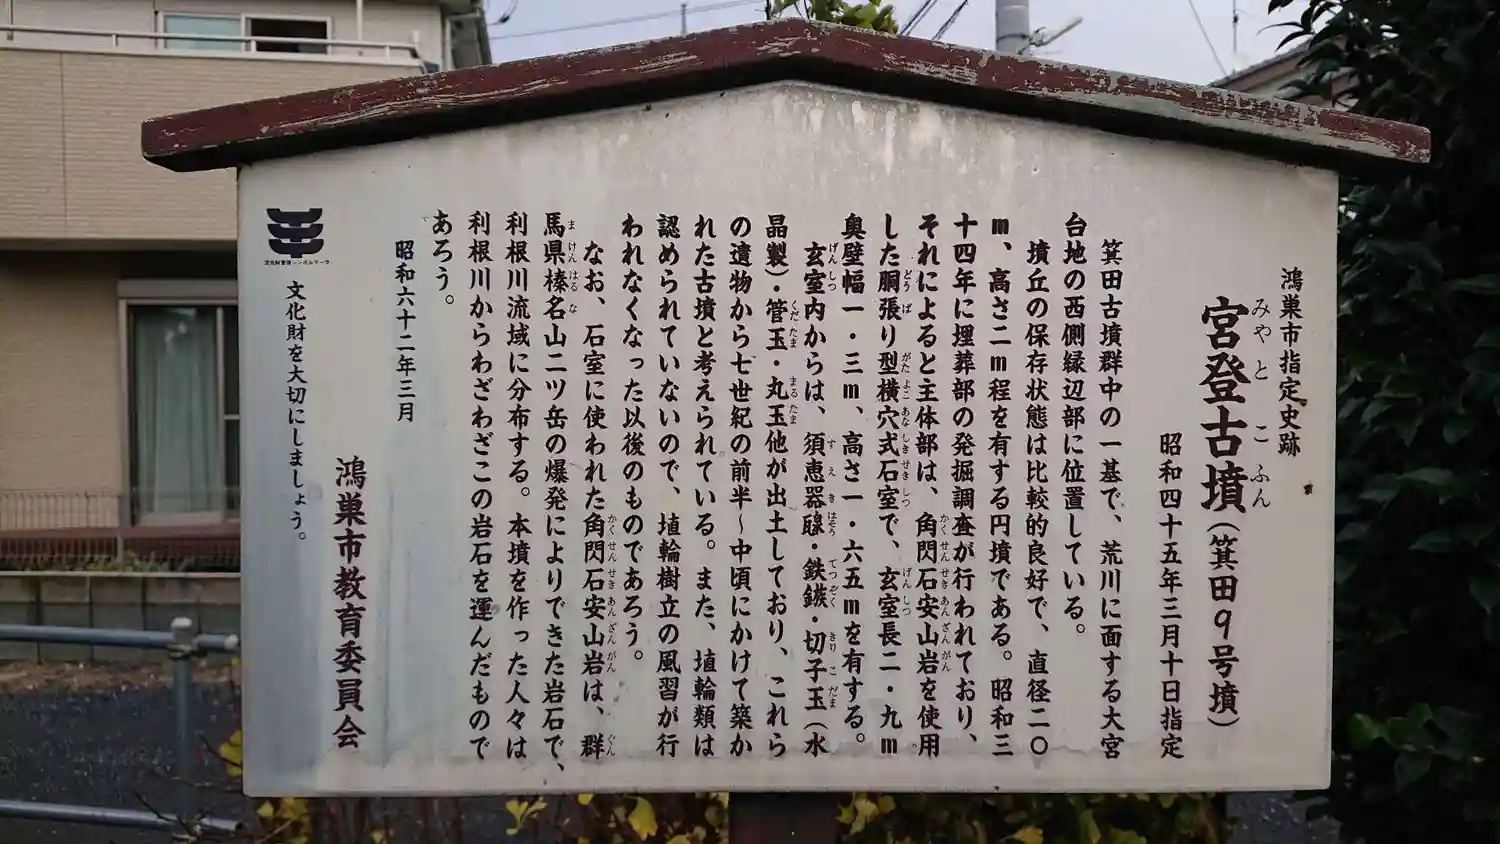 鴻巣市指定史跡
宮登古墳(箕田9号墳)
みやとこふん
昭和四十五年三月十日指定
箕田古墳群中の一基で、荒川に面する大宮
台地の西側縁辺部に位置している。
墳丘の保存状態は比較的良好で、直径二〇
m、高さ二m程を有する円墳である。昭和三
十四年に埋葬部の発掘調査が行われており、
それによると主体部は、角閃石安山岩を使用
かくせんせきあんざんがん
した胴張り型横穴式石室で、玄室長二・九m
どうばがたよこあなしきせきしつ
げんしつ
奥壁幅一・三m、高さ一・六五mを有する。
玄室内からは、須恵器𤭯・鉄鏃・切子玉(水
げんしつ
すえきはそう
てつぞく
きりこだま
晶製)・管玉・丸玉他が出土しており、これら
くだたま
まるたま
の遺物から七世紀の前半~中頃にかけて築か
れた古墳と考えられている。また、埴輪類は
認められていないので、埴輪樹立の風習が行
われなくなった以後のものであろう。
なお、石室に使われた角閃石安山岩は、群
かくせんせきあんざんがん
ぐん
馬県榛名山二ツ岳の爆発によりできた岩石で、
まけんはるな
利根川流域に分布する。本墳を作った人々は
利根川からわざわざこの岩石を運んだもので
あろう。
昭和六十二年三月
鴻巣市教育委員会
文化財愛護シンボルマーク
文化財を大切にしましょう。